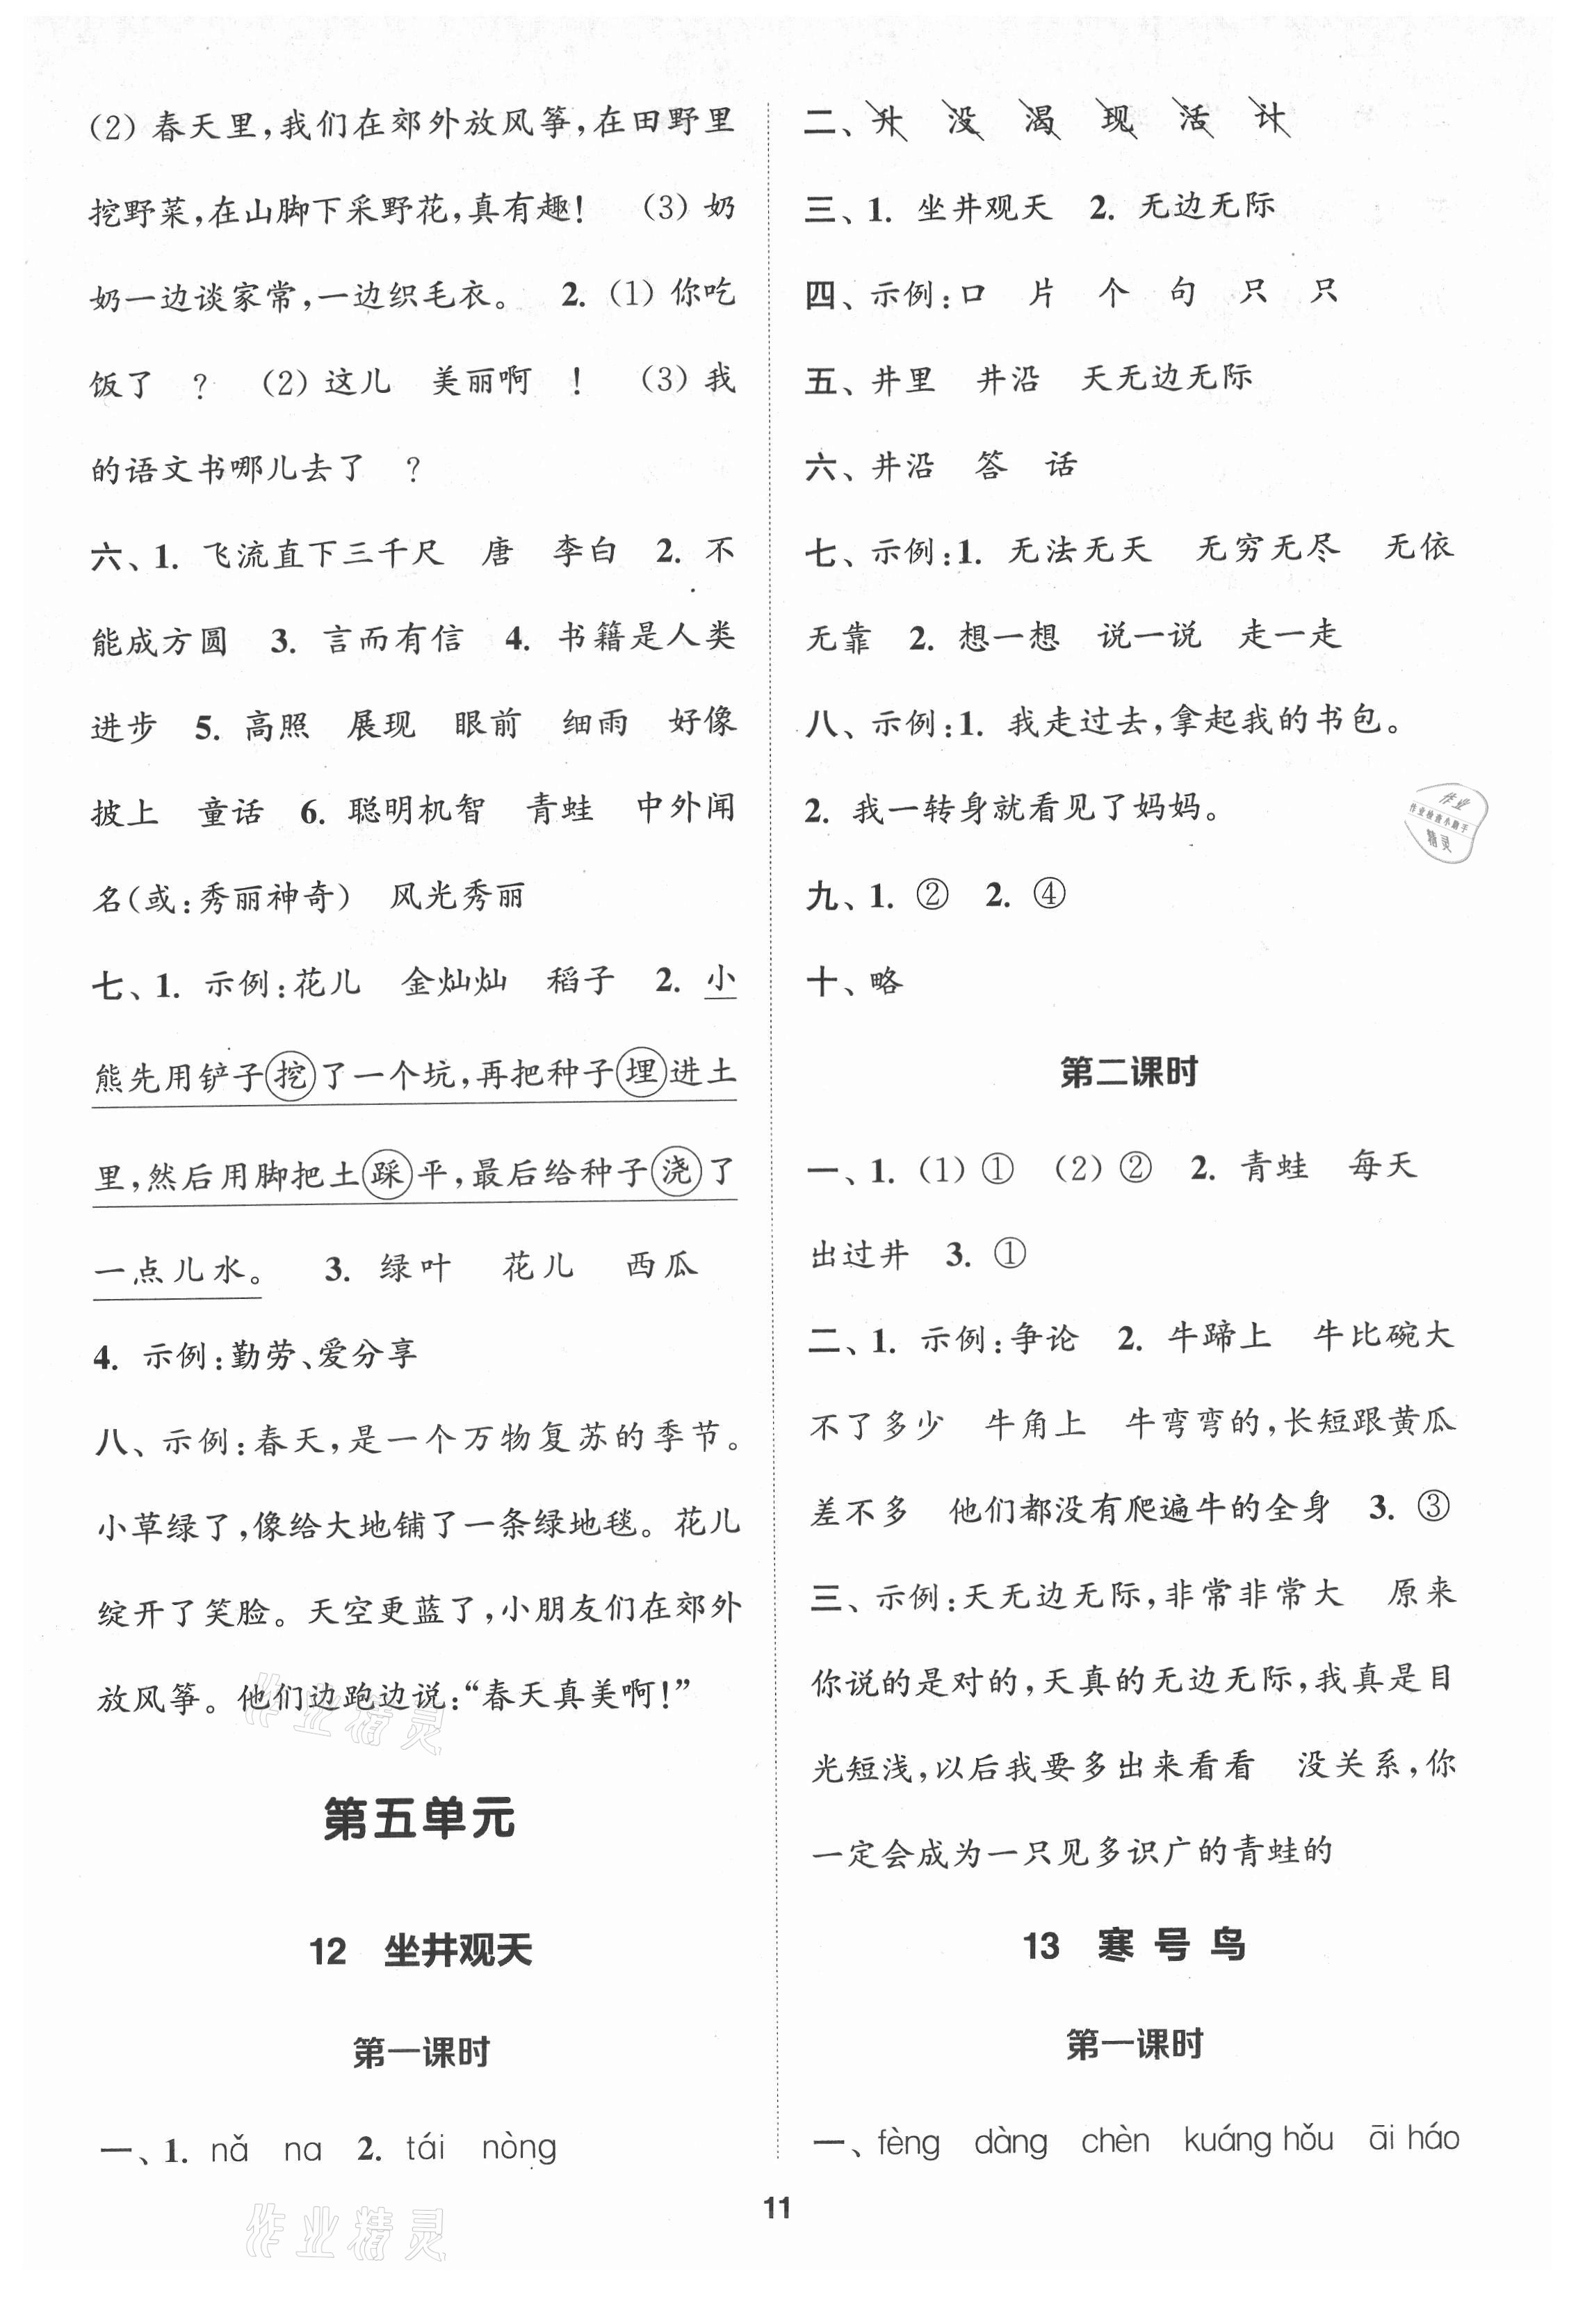 (2)春天里,我们在郊外放风筝,在田野里
挖野菜,在山脚下采野花,真有趣! (3)奶
奶一边谈家常,一边织毛衣。 2. (1)你吃
饭了 ? (2)这儿 美丽啊 ! (3)我
的语文书哪儿去了 ?
六、1. 飞流直下三千尺 唐 李白 2. 不
能成方圆 3. 言而有信 4. 书籍是人类
进步 5. 高照 展现 眼前 细雨 好像
披上 童话 6. 聪明机智 青蛙 中外闻
名(或:秀丽神奇) 风光秀丽
七、1. 示例:花儿 金灿灿 稻子 2. 小
熊先用铲子挖了一个坑,再把种子埋进土
里,然后用脚把土踩平,最后给种子浇了
一点儿水。 3. 绿叶 花儿 西瓜
4. 示例:勤劳、爱分享
八、示例:春天,是一个万物复苏的季节。
小草绿了,像给大地铺了一条绿地毯。花儿
绽开了笑脸。天空更蓝了,小朋友们在郊外
放风筝。他们边跑边说:“春天真美啊!”
第五单元
12 坐井观天
第一课时
一、1. nǎ na 2. tái nòng
二、升 没 渴 现 活 计
三、1. 坐井观天 2. 无边无际
四、示例:口 片 个 句 只 只
五、井里 井沿 天无边无际
六、井沿 答 话
七、示例:1. 无法无天 无穷无尽 无依
无靠 2. 想一想 说一说 走一走
八、示例:1. 我走过去,拿起我的书包。
2. 我一转身就看见了妈妈。
九、1. ② 2. ④
十、略
第二课时
一、1. (1)① (2)② 2. 青蛙 每天
出过井 3. ①
二、1. 示例:争论 2. 牛蹄上 牛比碗大
不了多少 牛角上 牛弯弯的,长短跟黄瓜
差不多 他们都没有爬遍牛的全身 3. ③
三、示例:天无边无际,非常非常大 原来
你说的是对的,天真的无边无际,我真是目
光短浅,以后我要多出来看看 没关系,你
一定会成为一只见多识广的青蛙的
13 寒号鸟
第一课时
一、fèng dàng chèn kuáng hǒu āi háo
11
作业
作业检查小助手
精灵
作业精灵
作业精灵